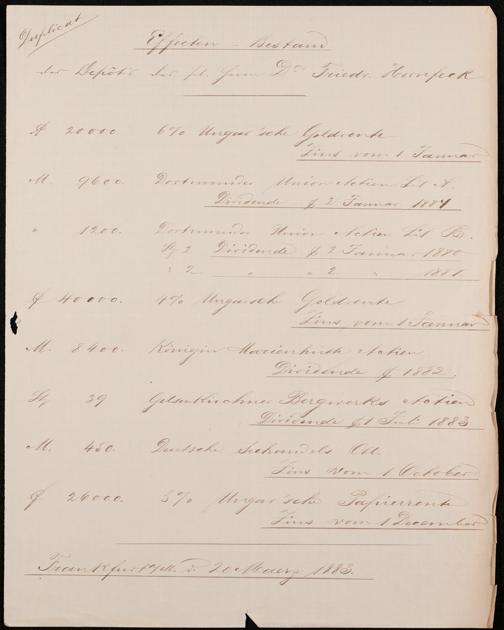 Duplicat
Effecten-Bestand
des Depôts des Herrn Dr Friedr. Hornfeck
20000 6% Ungar'sche Goldrente
Zins vom 1 Januar
M. 9600 Dortmunder Union Actien Lit A.
Dividende 2 Januar 1881
" 1200 Dortmunder Union Actien Lit B.
2 Dividende 2 Januar 1880
2 " " 2 " 1881
40000. 4% Ungarsche Goldrente
Zins vom 1 Januar
M. 8400. Königin Marienhütte Actien
Dividende 1882.
39 Gelsenkirchner Bergwerks Actien
Dividende 1 Juli 1883
M. 450. Deutsche Seehandels
Zins vom 1 October
26000. 5% Ungar'sche Papierrente
Zins vom 1 December
Frankfurt a/M. d. 20 Maerz 1883.